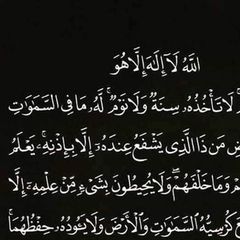 اللَّهُ لَآ إِلَٰهَ إِلَّا هُوَ
لَا تَأْخُذُهُۥ سِنَةٌ وَلَا نَوْمٌ ۚ لَّهُۥ مَا فِى السَّمَٰوَٰتِ
مَن ذَا الَّذِى يَشْفَعُ عِندَهُۥٓ إِلَّا بِإِذْنِهِۦ ۚ يَعْلَمُ
وَمَا خَلْفَهُمْ ۖ وَلَا يُحِيطُونَ بِشَىْءٍ مِّنْ عِلْمِهِۦٓ إِلَّا
كُرْسِيُّهُ السَّمَٰوَٰتِ وَالْأَرْضَ وَلَا يَـُٔودُهُۥ حِفْظُهُمَا ۚ